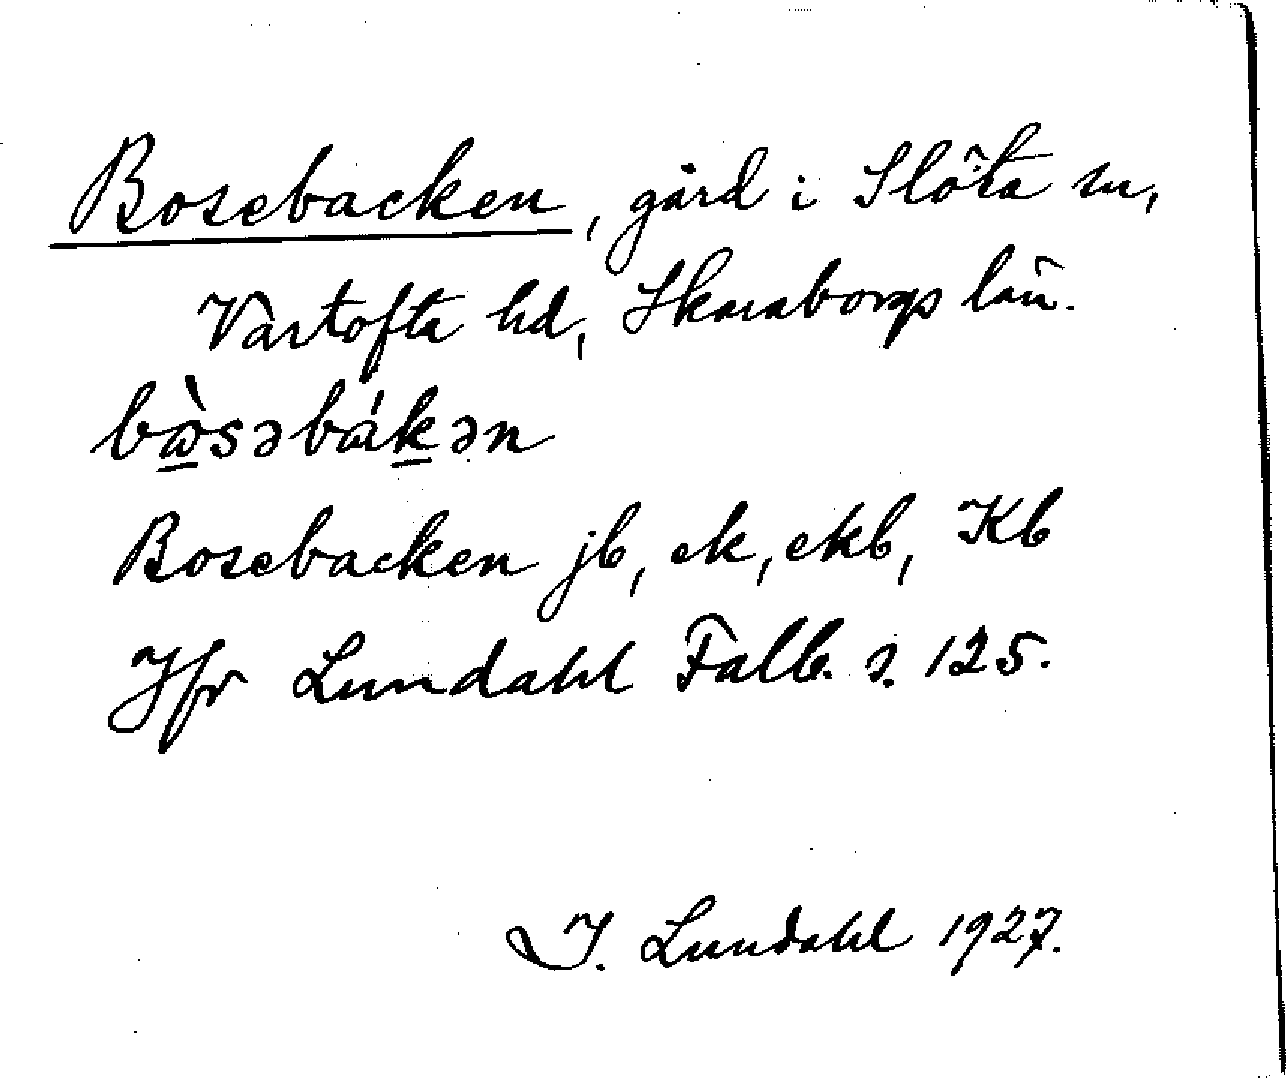 Bosebacken, gård i Slöta sn,
Vartofta hd, Skaraborgs län.
bæ̀sǝbákǝn
Bosebacken jb, ek, ekb, Kb
Jfr Lundahl Falb. s. 125.
I. Lundahl 1927.